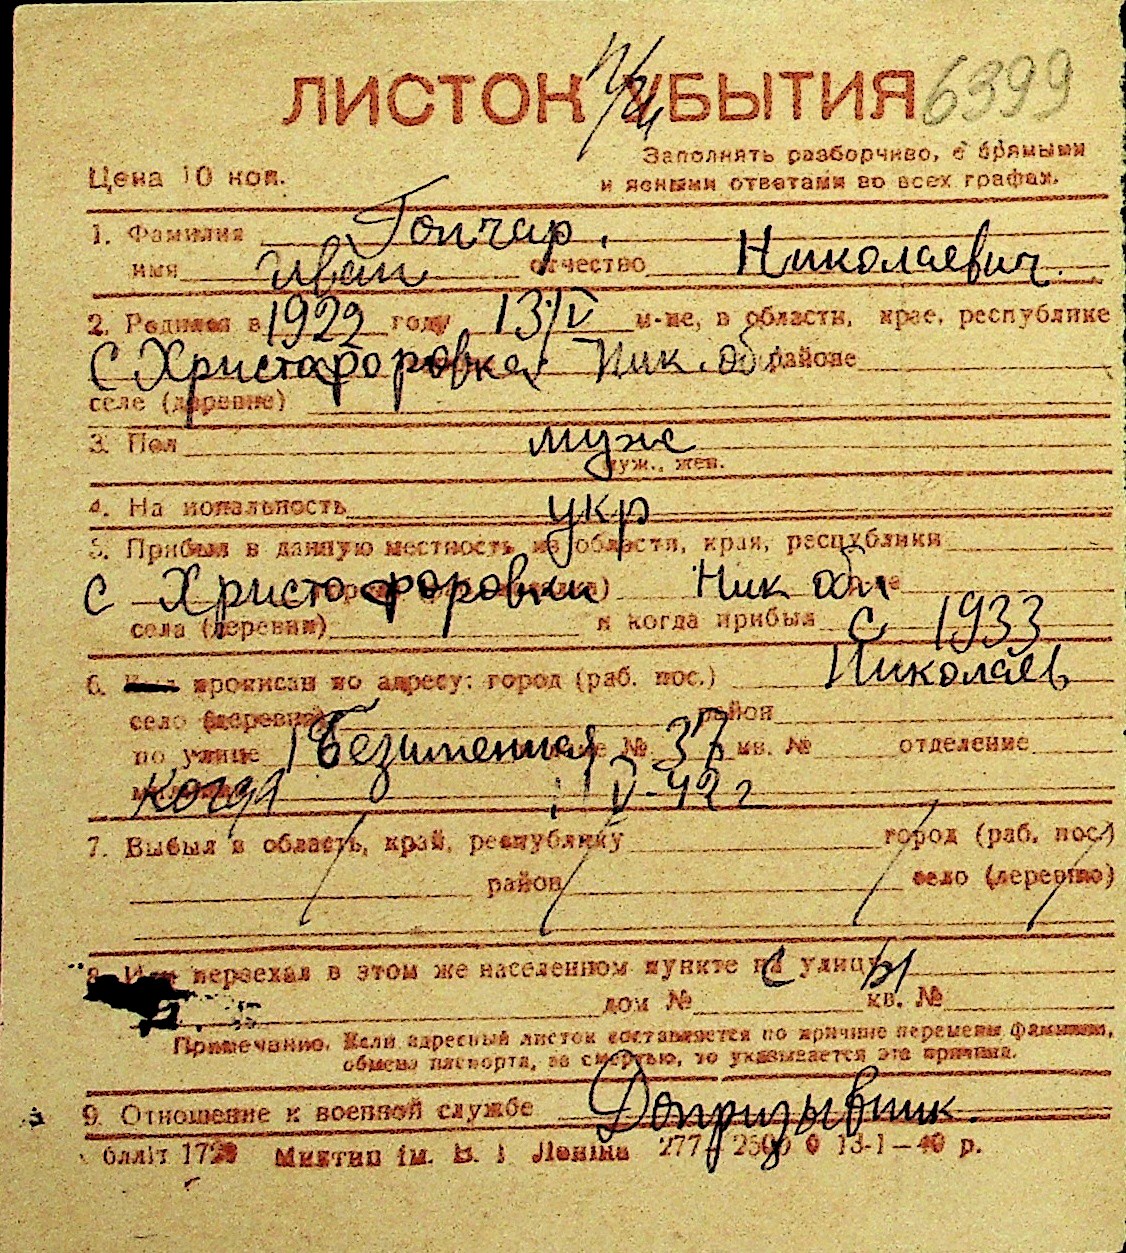 ЛИСТОК УБЫТИЯ 6399
Цена 10 коп.
Заполнять разборчиво, с прямыми
и ясными ответами во всех графах.
1. Фамилия Гончар.
имя Иван отчество Николаевич.
2. Родился в 1922 году 13/V м-це, в области, крае, республике
С Христафоровка Ник. обл районе
селе (деревне)
3. Пол муж
муж., жен.
4. Национальность укр
5. Прибыл в данную местность из области, края, республики
с Христофоровки Ник обл
села (деревни) и когда прибыл с 1933
6. прописан по адресу: город (раб. пос.) Николаев
село (деревня) район
по улице 1 Безименная № 37 кв. № отделение
когда 1 V-42 г
7. Выбыл в область, край, республику город (раб. пос.)
район село (деревню)
8. Или переехал в этом же населенном пункте на улицу
дом № кв. №
Примечание. Если адресный листок составляется по причине перемены фамилии,
обмена паспорта, за смертью, то указывается эта причина.
9. Отношение к военной службе Допризывник.
ім. В. І Леніна 277 13-1-40 р.